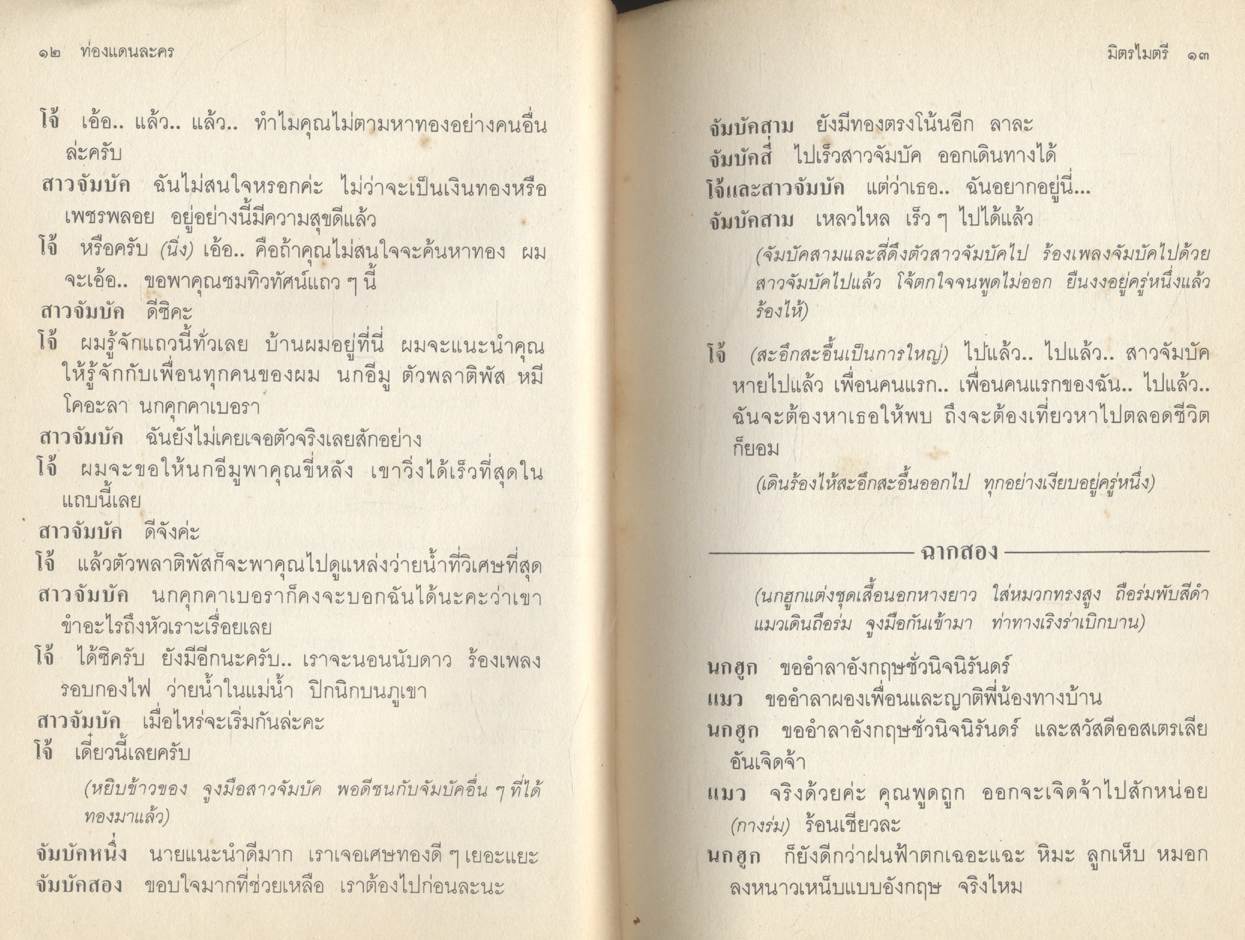 ๑๒ ท่องแดนละคร
โจ้ เอ้อ.. แล้ว.. แล้ว.. ทำไมคุณไม่ตามหาทองอย่างคนอื่น
ล่ะครับ
สาวจัมบัค ฉันไม่สนใจหรอกค่ะ ไม่ว่าจะเป็นเงินทองหรือ
เพชรพลอย อยู่อย่างนี้มีความสุขดีแล้ว
โจ้ หรือครับ (นิ่ง) เอ้อ.. คือถ้าคุณไม่สนใจจะค้นหาทอง ผม
จะเอ้อ.. ขอพาคุณชมทิวทัศน์แถว ๆ นี้
สาวจัมบัค ดีซิคะ
โจ้ ผมรู้จักแถวนี้ทั่วเลย บ้านผมอยู่ที่นี่ ผมจะแนะนำคุณ
ให้รู้จักกับเพื่อนทุกคนของผม นกอีมู ตัวพลาติพัส หมี
โคอะลา นกคุกคาเบอรา
สาวจัมบัค ฉันยังไม่เคยเจอตัวจริงเลยสักอย่าง
โจ้ ผมจะขอให้นกอีมูพาคุณขี่หลัง เขาวิ่งได้เร็วที่สุดใน
แถบนี้เลย
สาวจัมบัค ดีจังค่ะ
โจ้ แล้วตัวพลาติพัสก็จะพาคุณไปดูแหล่งว่ายน้ำที่วิเศษที่สุด
สาวจัมบัค นกคุกคาเบอราก็คงจะบอกฉันได้นะคะว่าเขา
ขำอะไรถึงหัวเราะเรื่อยเลย
โจ้ ได้ซิครับ ยังมีอีกนะครับ.. เราจะนอนนับดาว ร้องเพลง
รอบกองไฟ ว่ายน้ำในแม่น้ำ ปิกนิกบนภูเขา
สาวจัมบัค เมื่อไหร่จะเริ่มกันล่ะคะ
โจ้ เดี๋ยวนี้เลยครับ
(หยิบข้าวของ จูงมือสาวจัมบัค พอดีชนกับจัมบัคอื่น ๆ ที่ได้
ทองมาแล้ว)
จัมบัคหนึ่ง นายแนะนำดีมาก เราเจอเศษทองดี ๆ เยอะแยะ
จัมบัคสอง ขอบใจมากที่ช่วยเหลือ เราต้องไปก่อนละนะ
มิตรไมตรี ๑๓
จัมบัคสาม ยังมีทองตรงโน้นอีก ลาละ
จัมบัคสี่ ไปเร็วสาวจัมบัค ออกเดินทางได้
โจ้และสาวจัมบัค แต่ว่าเธอ.. ฉันอยากอยู่นี่...
จัมบัคสาม เหลวไหล เร็ว ๆ ไปได้แล้ว
(จัมบัคสามและสี่ดึงตัวสาวจัมบัคไป ร้องเพลงจัมบัคไปด้วย
สาวจัมบัคไปแล้ว โจ้ตกใจจนพูดไม่ออก ยืนงงอยู่ครู่หนึ่งแล้ว
ร้องไห้)
โจ้ (สะอึกสะอื้นเป็นการใหญ่) ไปแล้ว.. ไปแล้ว.. สาวจัมบัค
หายไปแล้ว เพื่อนคนแรก.. เพื่อนคนแรกของฉัน.. ไปแล้ว..
ฉันจะต้องหาเธอให้พบ ถึงจะต้องเที่ยวหาไปตลอดชีวิต
ก็ยอม
(เดินร้องไห้สะอึกสะอื้นออกไป ทุกอย่างเงียบอยู่ครู่หนึ่ง)
ฉากสอง
(นกฮูกแต่งชุดเสื้อนอกหางยาว ใส่หมวกทรงสูง ถือร่มพับสีดำ
แมวเดินถือร่ม จูงมือกันเข้ามา ท่าทางเริงร่าเบิกบาน)
นกฮูก ขออำลาอังกฤษชั่วนิจนิรันดร์
แมว ขออำลาผองเพื่อนและญาติพี่น้องทางบ้าน
นกฮูก ขออำลาอังกฤษชั่วนิจนิรันดร์ และสวัสดีออสเตรเลีย
อันเจิดจ้า
แมว จริงด้วยค่ะ คุณพูดถูก ออกจะเจิดจ้าไปสักหน่อย
(กางร่ม) ร้อนเชียวละ
นกฮูก ก็ยังดีกว่าฝนฟ้าตกเฉอะแฉะ หิมะ ลูกเห็บ หมอก
ลงหนาวเหน็บแบบอังกฤษ จริงไหม